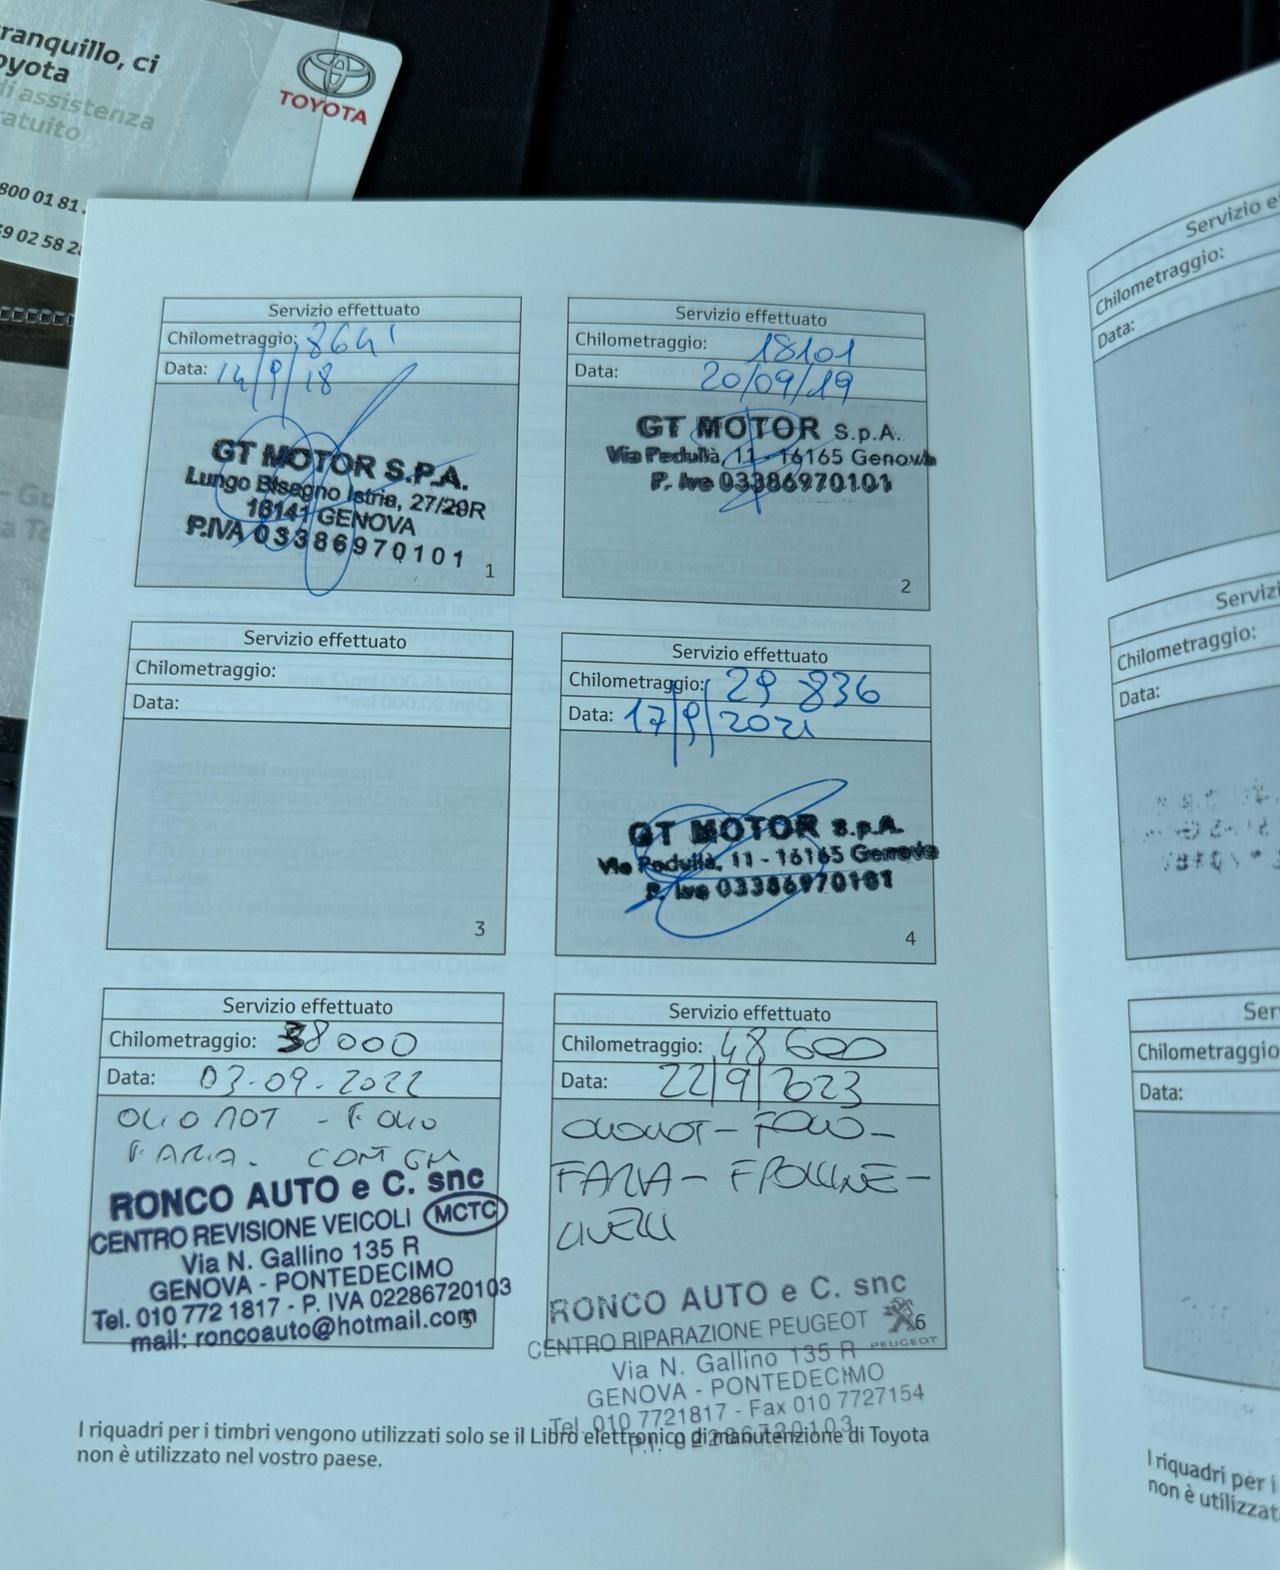 ranquillo, ci
oyota
di assistenza
ratuito
TOYOTA
800 01 81
39 02 58 2
Servizio effettuato
Chilometraggio: 8641
Data: 14/9/18
GT MOTOR S.P.A.
Lungo Bisagno Istria, 27/29R
16141 GENOVA
P.IVA 03386970101
1
Servizio effettuato
Chilometraggio: 18101
Data: 20/09/19
GT MOTOR S.p.A.
Via Pedullà, 11 - 16165 Genova
P. Iva 03386970101
2
Servizio effettuato
Chilometraggio:
Data:
3
Servizio effettuato
Chilometraggio: 29 836
Data: 17/9/2021
GT MOTOR S.p.A.
Via Pedullà, 11 - 16165 Genova
P. Iva 03386970101
4
Servizio effettuato
Chilometraggio: 38000
Data: 03-09-2022
OLIO MOT - F. OLIO
F. ARIA.
RONCO AUTO e C. snc
CENTRO REVISIONE VEICOLI MCTC
Via N. Gallino 135 R
GENOVA - PONTEDECIMO
Tel. 010 772 1817 - P. IVA 02286720103
mail: roncoauto@hotmail.com
5
Servizio effettuato
Chilometraggio: 48600
Data: 22/9/2023
OLIOMOT - FOLIO -
FARIA - FPOLLINE -
LIVELLI
RONCO AUTO e C. snc
CENTRO RIPARAZIONE PEUGEOT
PEUGEOT
6
Via N. Gallino 135 R
GENOVA - PONTEDECIMO
Tel. 010 7721817 - Fax 010 7727154
P.I. 02286720103
I riquadri per i timbri vengono utilizzati solo se il Libro elettronico di manutenzione di Toyota
non è utilizzato nel vostro paese.
Servizio e
Chilometraggio:
Data:
Servizi
Chilometraggio:
Data:
Ser
Chilometraggio
Data:
I riquadri per i
non è utilizzat